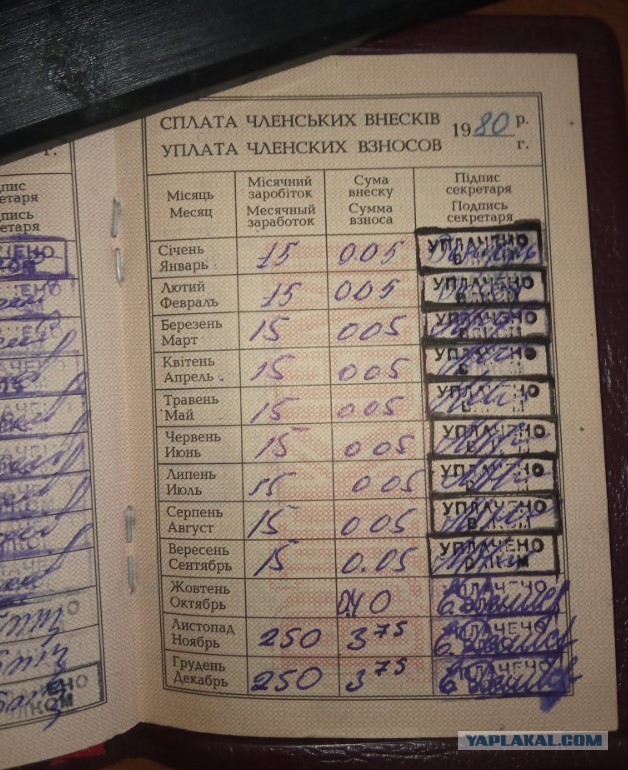 г.
дпис
етаря
дпись
етаря
СПЛАТА ЧЛЕНСЬКИХ ВНЕСКІВ
УПЛАТА ЧЛЕНСКИХ ВЗНОСОВ
1980 р.
г.
Місяць
Месяц
Місячний
заробіток
Месячный
заработок
Сума
внеску
Сумма
взноса
Підпис
секретаря
Подпись
секретаря
Січень
Январь
15 005 УПЛАЧЕНО
Лютий
Февраль
15 005 УПЛАЧЕНО
Березень
Март
15 005 УПЛАЧЕНО
Квітень
Апрель
15 005 УПЛАЧЕНО
Травень
Май
15 005 УПЛАЧЕНО
Червень
Июнь
15 005 УПЛАЧЕНО
Липень
Июль
15 005 УПЛАЧЕНО
Серпень
Август
15 005 УПЛАЧЕНО
Вересень
Сентябрь
15 0.05 УПЛАЧЕНО
Жовтень
Октябрь
УПЛАЧЕНО
Листопад
Ноябрь
250 3 75 УПЛАЧЕНО
Грудень
Декабрь
250 3 75 УПЛАЧЕНО
YAPLAKAL.COM